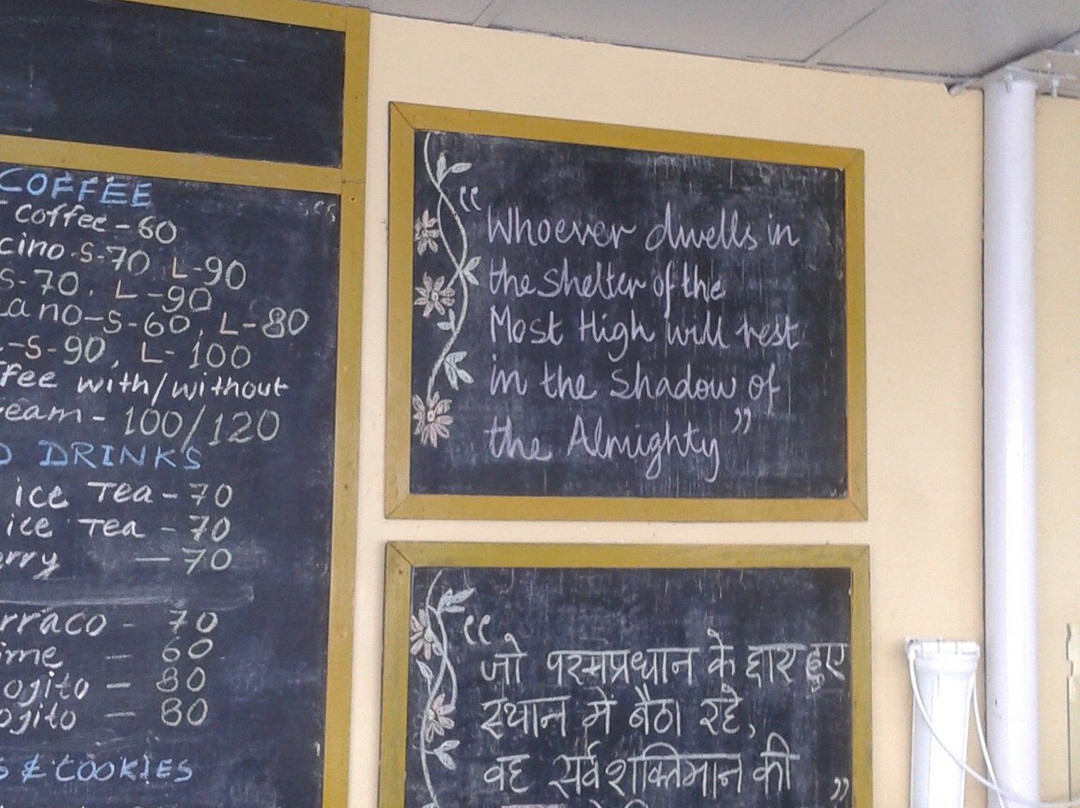 COFFEE
coffee - 60
cino - S-70, L-90
S-70, L-90
ano-S-60, L-80
-S-90, L-100
fee with/without
eam - 100/120
DRINKS
ice Tea - 70
ice Tea - 70
rry - 70
rraco - 70
ime - 60
ojito - 80
ojito - 80
& COOKIES
“Whoever dwells in
the shelter of the
Most High will rest
in the shadow of
the Almighty”
“जो परमप्रधान के द्वारा हुए
स्थान में बैठा रहे,
वह सर्वशक्तिमान की